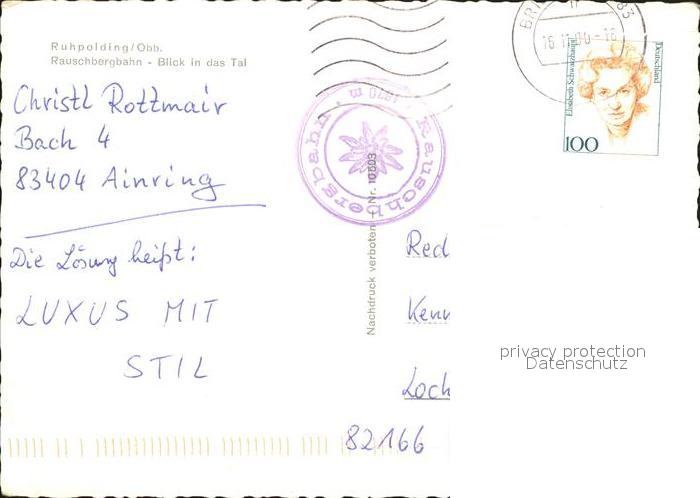 Ruhpolding/Obb.
Rauschbergbahn - Blick in das Tal
Christl Rottmair
Bach 4
83404 Ainring
Die Lösung heißt:
LUXUS MIT
STIL
Rauschbergbahn · 1670 m ·
Nachdruck verboten - Nr. 10603
Elisabeth Schwarzhaupt
Deutschland
100
Red
Kenn
Loch
82166
privacy protection
Datenschutz